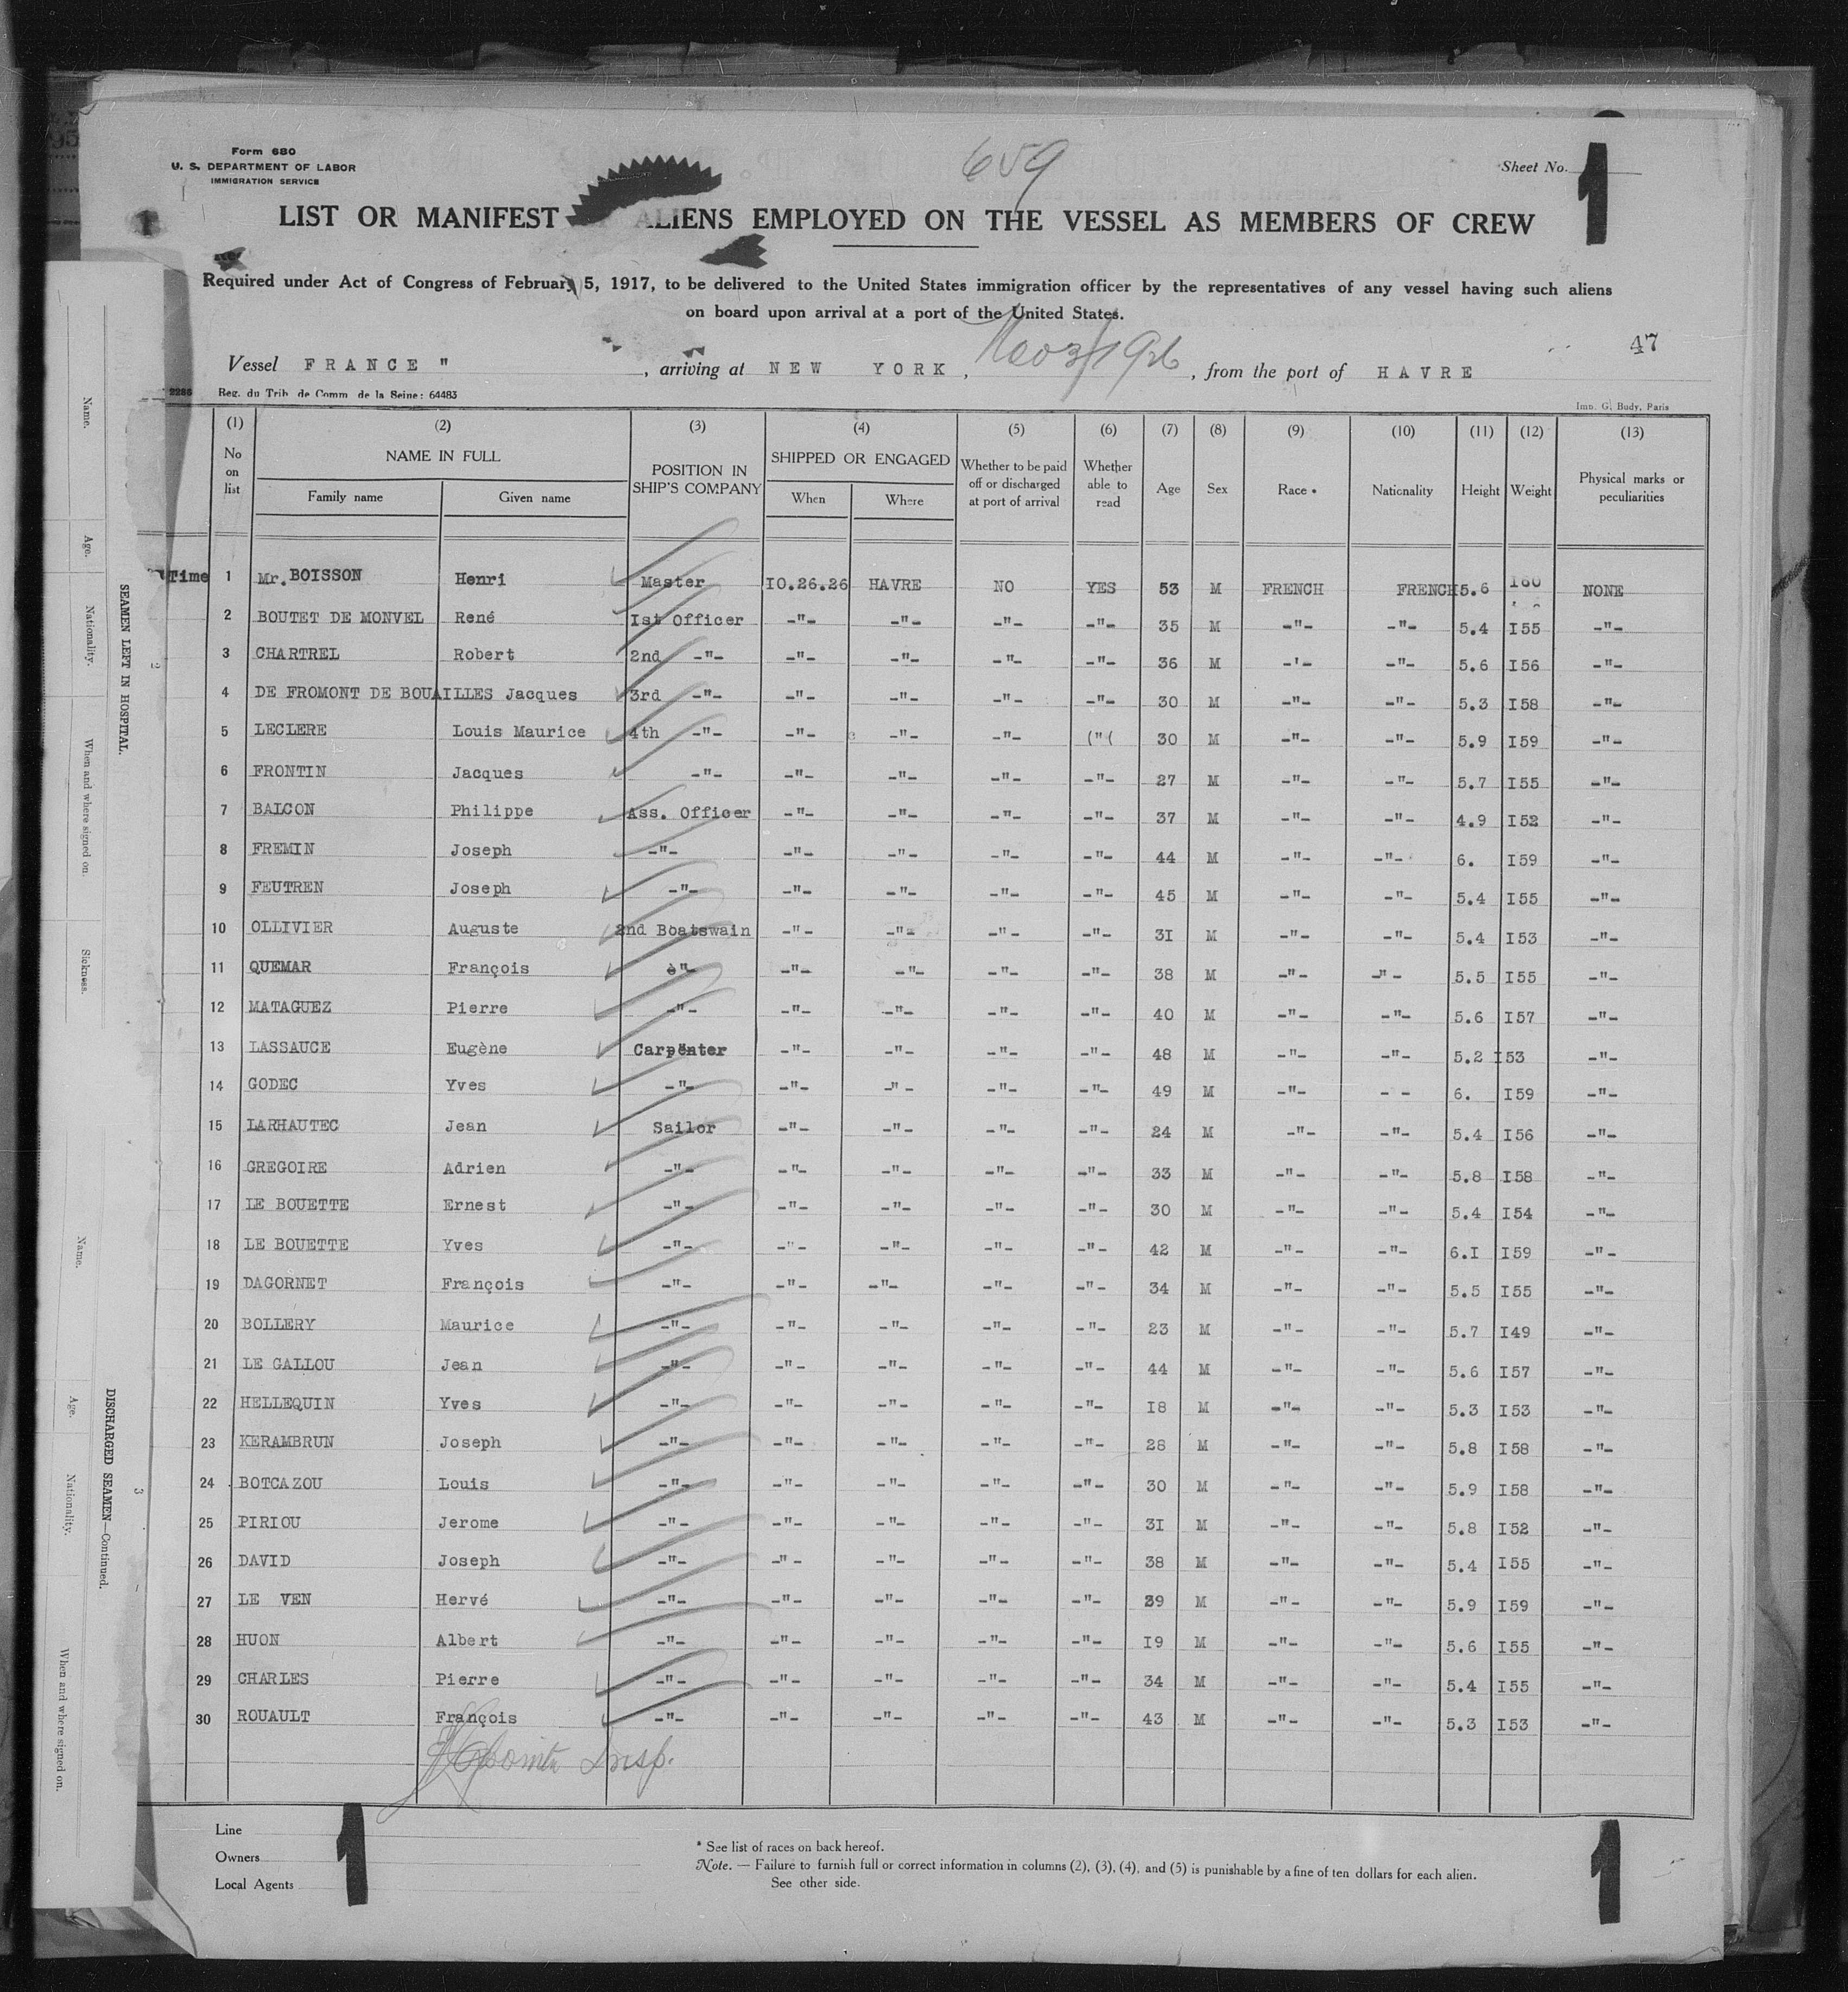 Form 680
U. S. DEPARTMENT OF LABOR
IMMIGRATION SERVICE
659
Sheet No. 1
LIST OR MANIFEST ALIENS EMPLOYED ON THE VESSEL AS MEMBERS OF CREW
Required under Act of Congress of February 5, 1917, to be delivered to the United States immigration officer by the representatives of any vessel having such aliens
on board upon arrival at a port of the United States.
47
Vessel FRANCE " , arriving at NEW YORK , Nov 3/1926 , from the port of HAVRE
2286 Reg. du Trib. de Comm. de la Seine: 64483
Imp. G. Budy, Paris
(1) (2) (3) (4) (5) (6) (7) (8) (9) (10) (11) (12) (13)
No on list NAME IN FULL Family name Given name POSITION IN SHIP'S COMPANY SHIPPED OR ENGAGED When Where Whether to be paid off or discharged at port of arrival Whether able to read Age Sex Race * Nationality Height Weight Physical marks or peculiarities
Time 1 Mr. BOISSON Henri Master IO.26.26 HAVRE NO YES 53 M FRENCH FRENCH 5.6 I60 NONE
2 BOUTET DE MONVEL René Ist Officer -"- -"- -"- -"- 35 M -"- -"- 5.4 I55 -"-
3 CHARTREL Robert 2nd -"- -"- -"- -"- -"- 36 M -'- -"- 5.6 I56 -"-
4 DE FROMONT DE BOUAILLES Jacques 3rd -"- -"- -"- -"- -"- 30 M -"- -"- 5.3 I58 -"-
5 LECLERE Louis Maurice 4th -"- -"- -"- -"- ("( 30 M -"- -"- 5.9 I59 -"-
6 FRONTIN Jacques -"- -"- -"- -"- -"- 27 M -"- -"- 5.7 I55 -"-
7 BALCON Philippe Ass. Officer -"- -"- -"- -"- 37 M -"- -"- 4.9 I52 -"-
8 FREMIN Joseph -"- -"- -"- -"- -"- 44 M -"- -"- 6. I59 -"-
9 FEUTREN Joseph -"- -"- -"- -"- -"- 45 M -"- -"- 5.4 I55 -"-
10 OLLIVIER Auguste 2nd Boatswain -"- -"- -"- -"- 3I M -"- -"- 5.4 I53 -"-
11 QUEMAR François -"- -"- -"- -"- -"- 38 M -"- -"- 5.5 I55 -"-
12 MATAGUEZ Pierre -"- -"- -"- -"- -"- 40 M -"- -"- 5.6 I57 -"-
13 LASSAUCE Eugène Carpenter -"- -"- -"- -"- 48 M -"- -"- 5.2 I53 -"-
14 GODEC Yves -"- -"- -"- -"- -"- 49 M -"- - - 6. I59 -"-
15 LARHAUTEC Jean Sailor -"- -"- -"- -"- 24 M -"- -"- 5.4 I56 -"-
16 GREGOIRE Adrien -"- -"- -"- -"- -"- 33 M -"- -"- 5.8 I58 -"-
17 LE BOUETTE Ernest -"- -"- -"- -"- -"- 30 M -"- -"- 5.4 I54 -"-
18 LE BOUETTE Yves -"- -"- -"- -"- -"- 42 M -"- -"- 6.I I59 -"-
19 DAGORNET François -"- -"- -"- -"- -"- 34 M -"- -"- 5.5 I55 -"-
20 BOLLERY Maurice -"- -"- -"- -"- -"- 23 M -"- -"- 5.7 I49 -"-
21 LE GALLOU Jean -"- -"- -"- -"- -"- 44 M -"- -"- 5.6 I57 -"-
22 HELLEQUIN Yves -"- -"- -"- -"- -"- I8 M -"- -"- 5.3 I53 -"-
23 KERAMBRUN Joseph -"- -"- -"- -"- -"- 28 M -"- -"- 5.8 I58 -"-
24 BOTCAZOU Louis -"- -"- -"- -"- -"- 30 M -"- -"- 5.9 I58 -"-
25 PIRIOU Jerome -"- -"- -"- -"- -"- 3I M -"- -"- 5.8 I52 -"-
26 DAVID Joseph -"- -"- -"- -"- -"- 38 M -"- -"- 5.4 I55 -"-
27 LE VEN Hervé -"- -"- -"- -"- -"- 39 M -"- -"- 5.9 I59 -"-
28 HUON Albert -"- -"- -"- -"- -"- I9 M -"- -"- 5.6 I55 -"-
29 CHARLES Pierre -"- -"- -"- -"- -"- 34 M -"- -"- 5.4 I55 -"-
30 ROUAULT François -"- -"- -"- -"- -"- 43 M -"- -"- 5.3 I53 -"-
Insp.
Line
Owners
Local Agents
1
1
* See list of races on back hereof.
Note. — Failure to furnish full or correct information in columns (2), (3), (4), and (5) is punishable by a fine of ten dollars for each alien.
See other side.
SEAMEN LEFT IN HOSPITAL.
Name.
Age.
Nationality.
When and where signed on.
Sickness.
2
DISCHARGED SEAMEN—Continued.
Name.
Age.
Nationality.
When and where signed on.
3